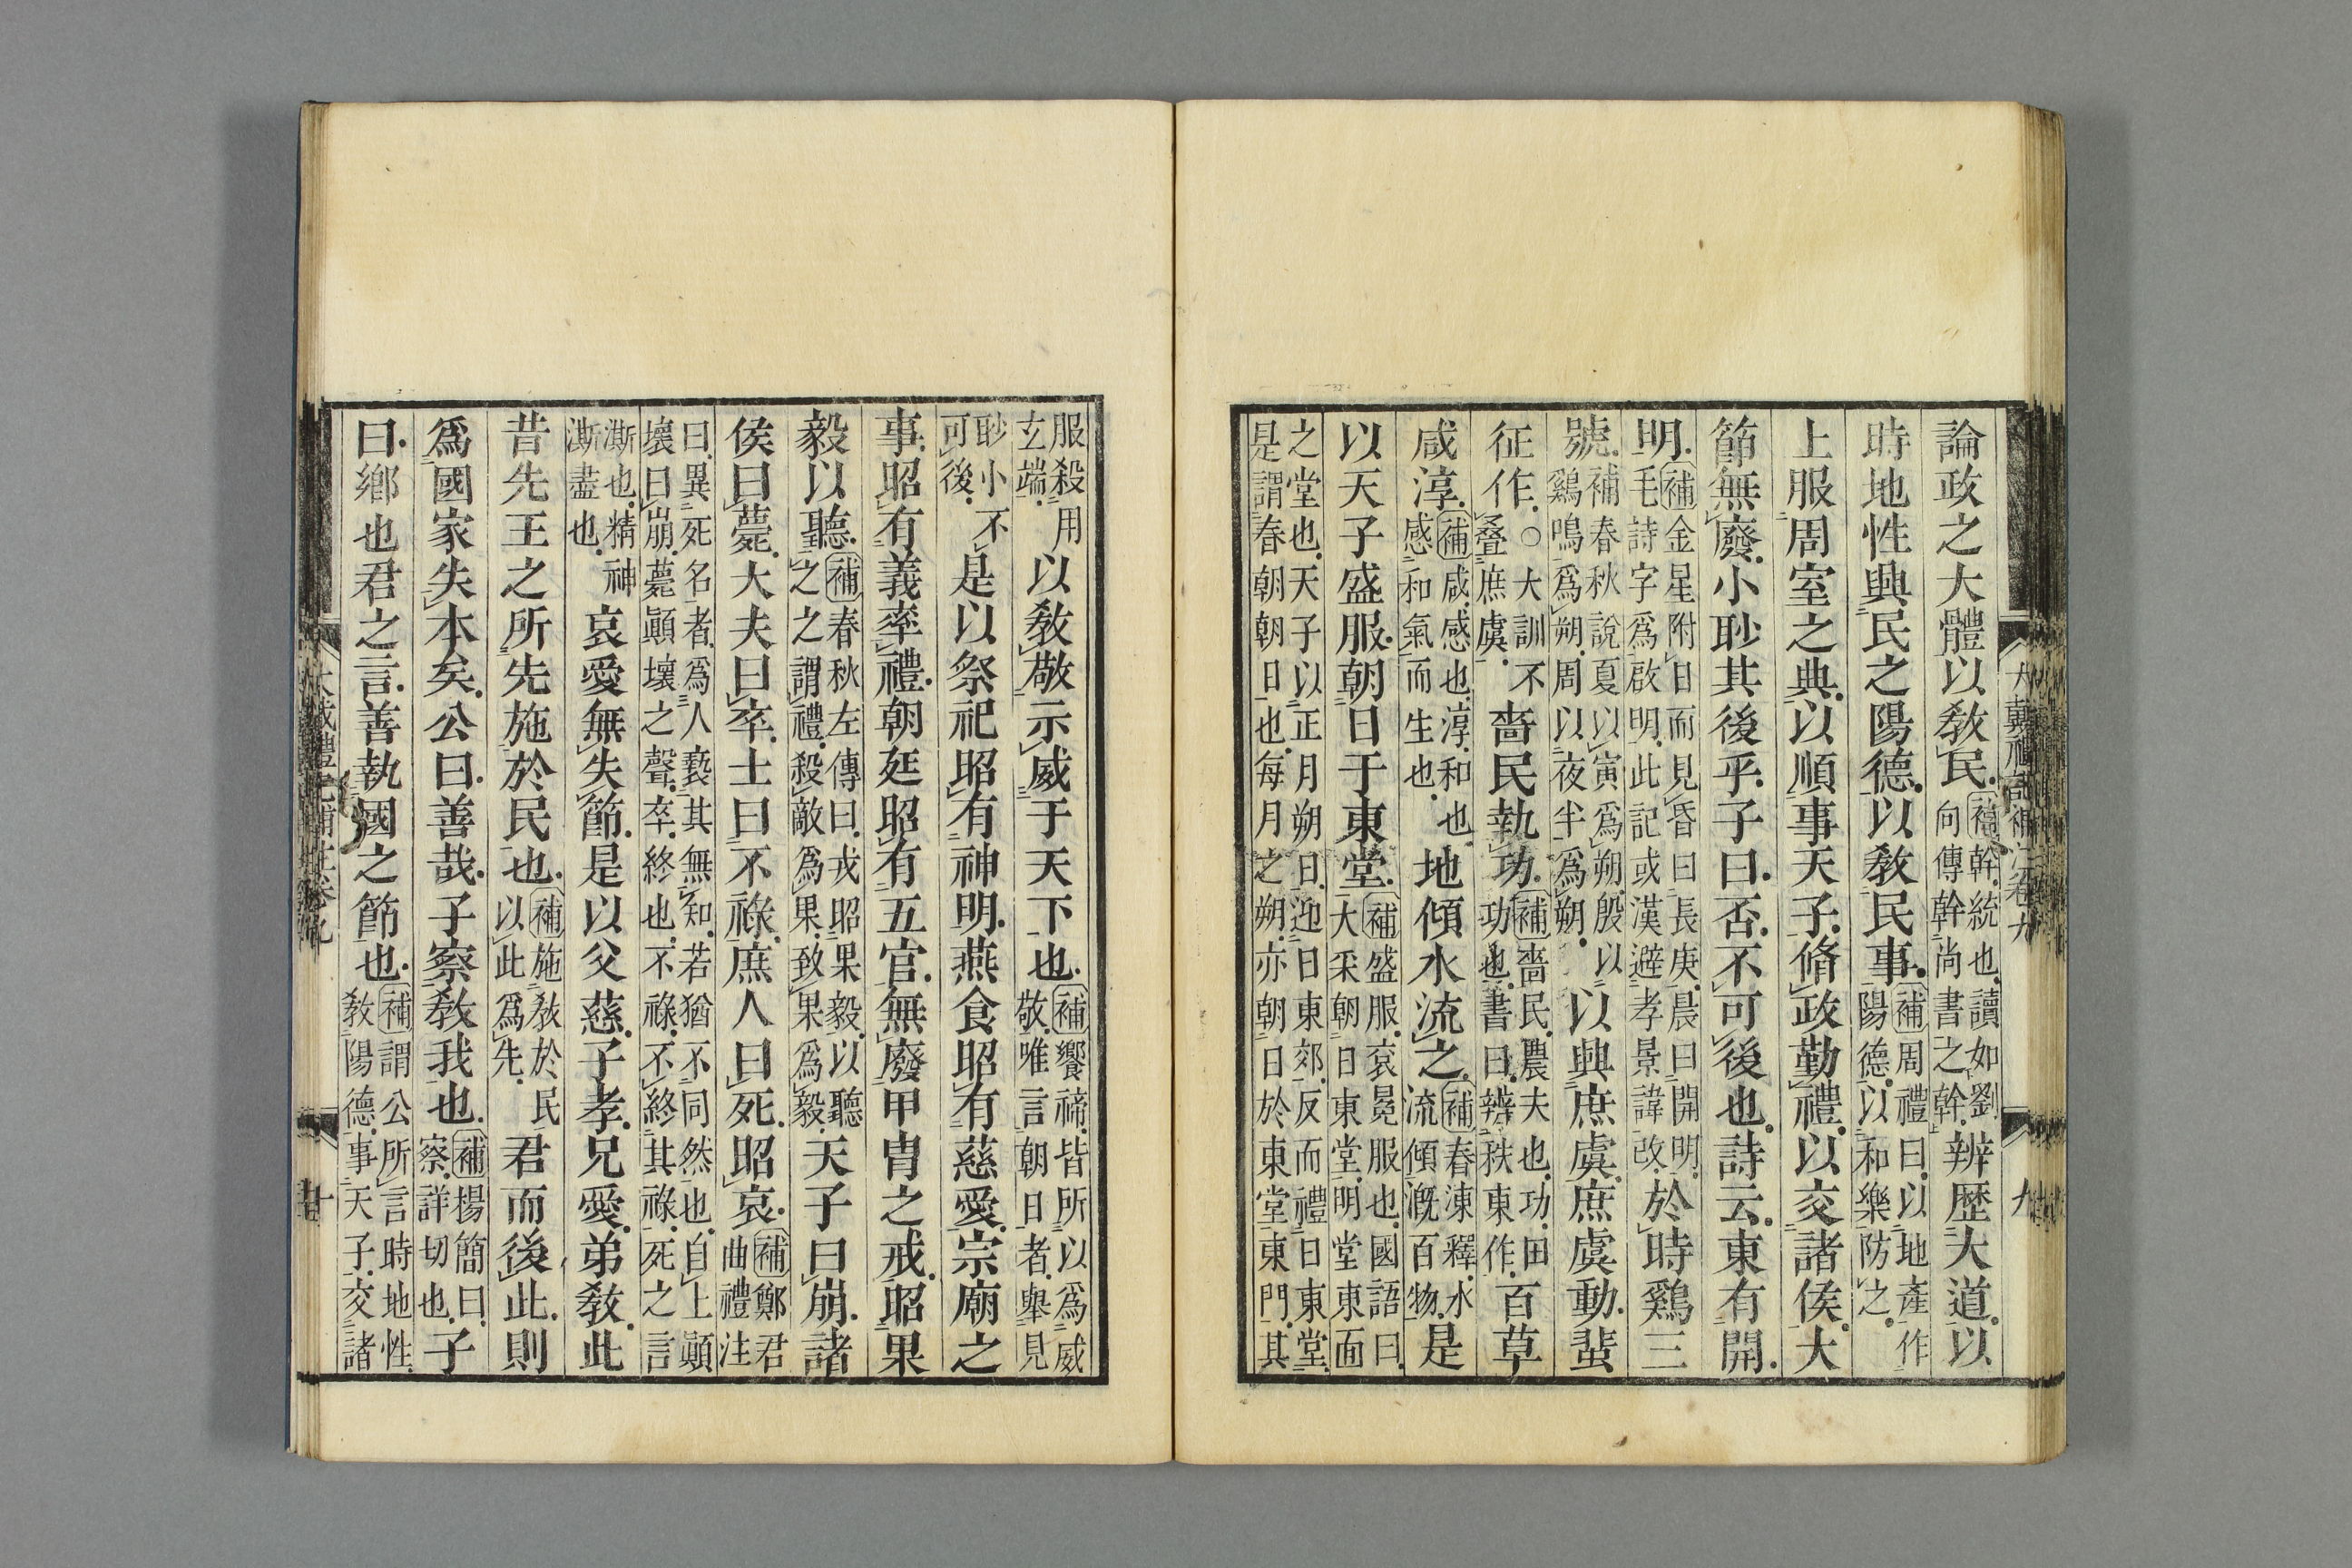 論政之大體以敎民補幹統也讀如劉向傳幹尚書之幹辨歷大道以
時地性興民之陽德以敎民事補周禮曰以地產作陽德以和樂防之
上服周室之典以順事天子脩政勤禮以交諸侯大
節無廢小眇其後乎子曰否不可後也詩云東有開
明補金星附日而見昏曰長庚晨曰開明毛詩字爲啟明此記或漢避孝景諱改於時鷄三
號補春秋說夏以寅爲朔殷以鷄鳴爲朔周以夜半爲朔以興庶虞庶虞動蜚
征作○大訓不叠庶虞嗇民執功補嗇民農夫也功田功也書曰辨秩東作百草
咸淳補咸感也淳和也感和氣而生也地傾水流之補春涷釋水流傾漑百物是
以天子盛服朝日于東堂補盛服袞冕服也國語曰大采朝日東堂明堂東面
之堂也天子以正月朔日迎日東郊反而禮日東堂是謂春朝朝日也每月之朔亦朝日於東堂東門其
大戴禮記補注卷九
九
服殺用玄端以敎敬示威于天下也補饗禘皆所以爲威敬唯言朝日者舉見
眇小不可後是以祭祀昭有神明燕食昭有慈愛宗廟之
事昭有義率禮朝廷昭有五官無廢甲冑之戒昭果
毅以聽補春秋左傳曰戎昭果毅以聽之之謂禮殺敵爲果致果爲毅天子曰崩諸
侯曰薨大夫曰卒士曰不祿庶人曰死昭哀補鄭君曲禮注
曰異死名者爲人褻其無知若猶不同然也自上顚壞曰崩薨顚壞之聲卒終也不祿不終其祿死之言
澌也精神澌盡也哀愛無失節是以父慈子孝兄愛弟敎此
昔先王之所先施於民也補施敎於民以此爲先君而後此則
爲國家失本矣公曰善哉子察敎我也補揚簡曰察詳切也子
曰鄉也君之言善執國之節也補謂公所言時地性敎陽德事天子交諸
大戴禮記補注卷九
十